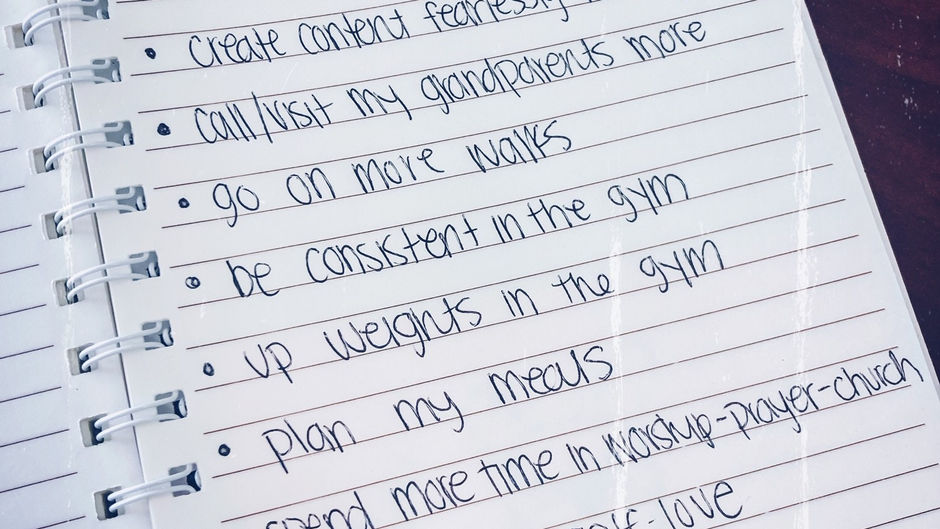 • create content fearlessly
• call/visit my grandparents more
• go on more walks
• be consistent in the gym
• up weights in the gym
• plan my meals
spend more time in worship-prayer-church
self-love